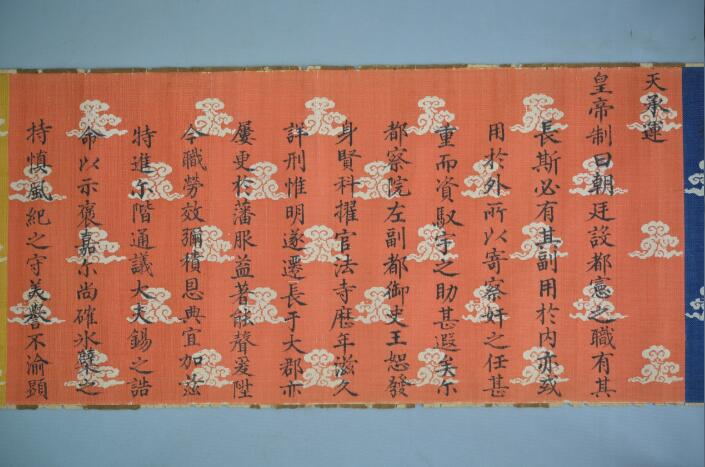 天承運
皇帝制曰朝廷設都憲之職有其
長斯必有其副用於内亦或
用於外所以寄察奸之任甚
重而資馭下之助甚遐矣尔
都察院左副都御史王恕發
身賢科擢官法寺歴年滋久
詳刑惟明遂遷長于大郡亦
屢更於藩服益著能聲爰陞
今職勞效彌積恩典宜加茲
特進尔階通議大夫錫之誥
命以示褒嘉尔尚確氷糵之
持慎風紀之守美譽不渝顕